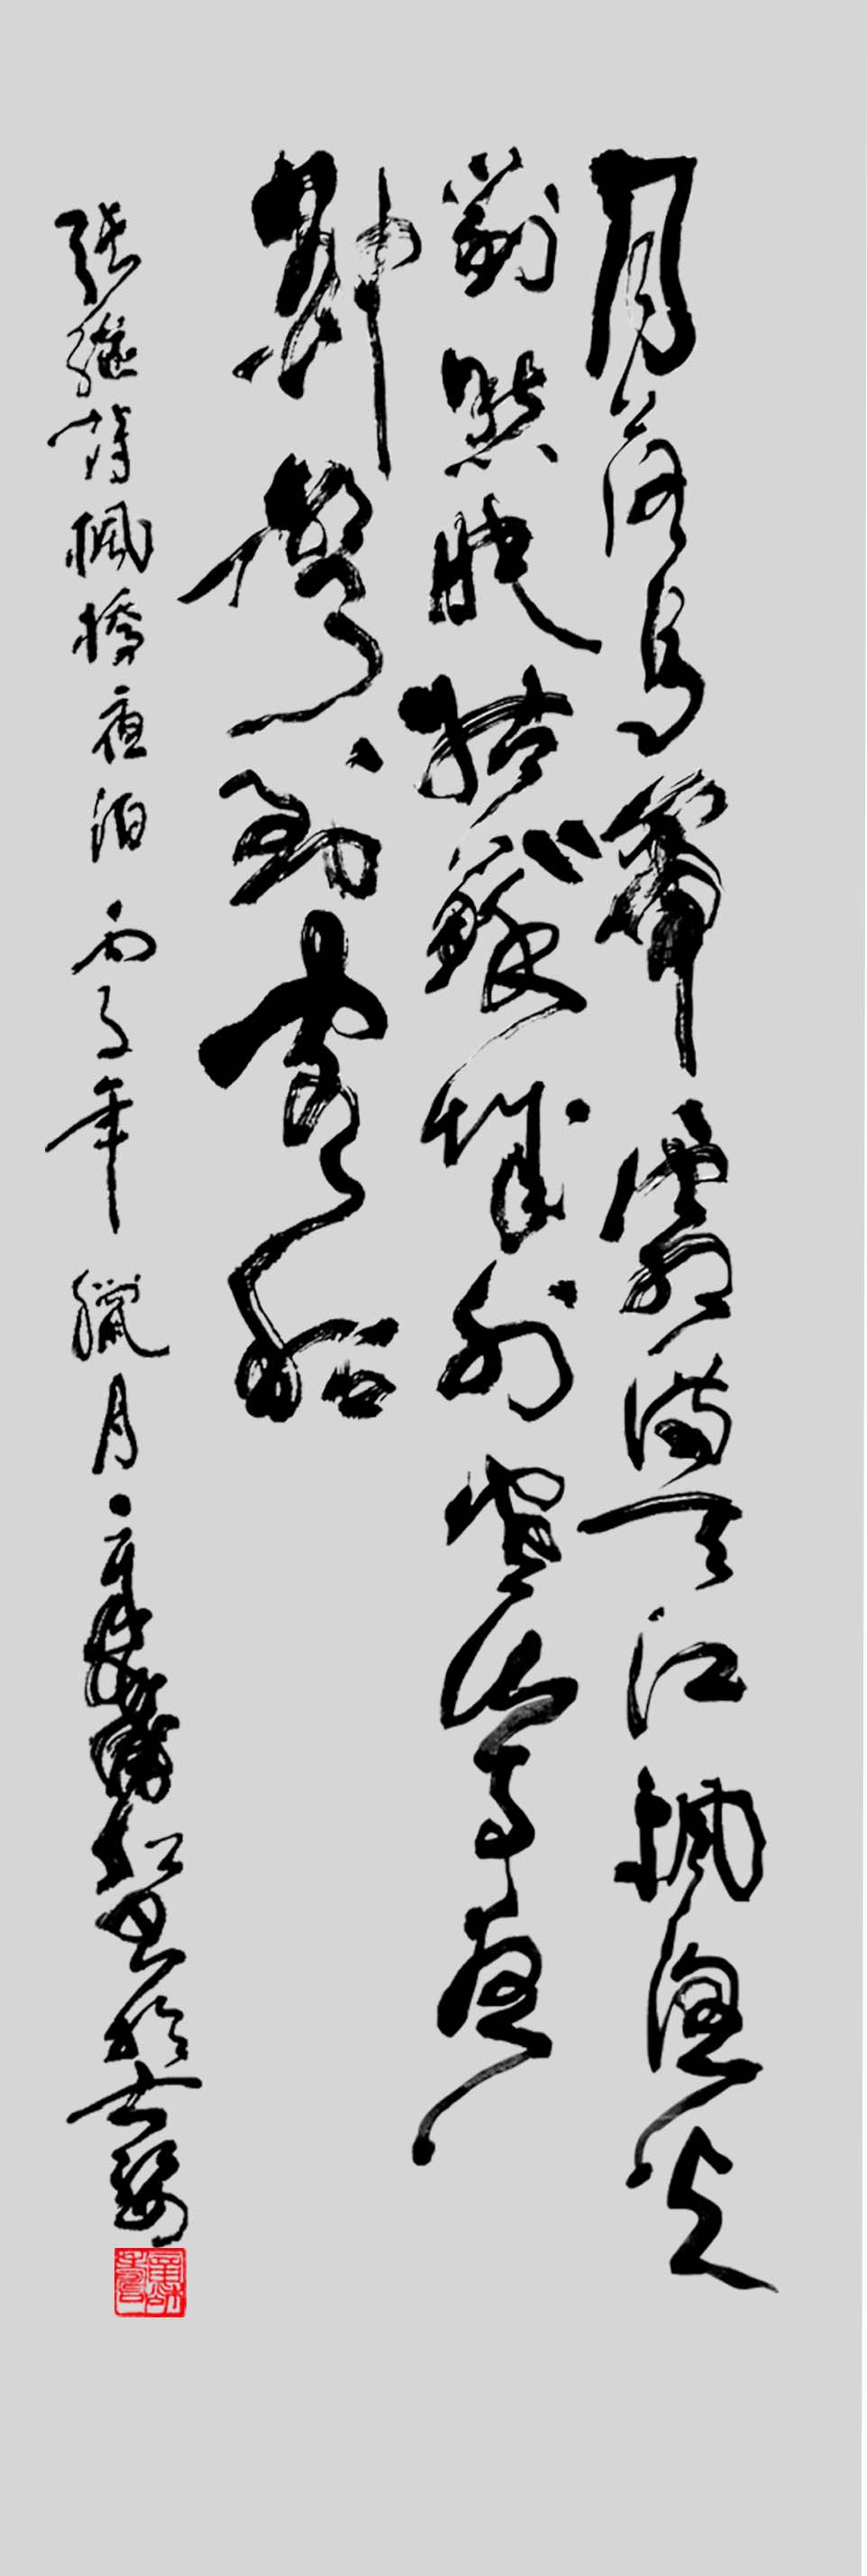 月落烏啼霜滿天江楓漁火
對愁眠姑蘇城外寒山寺夜
鐘聲到客船
張繼詩楓橋夜泊 丙子年 臘月 書於古婺